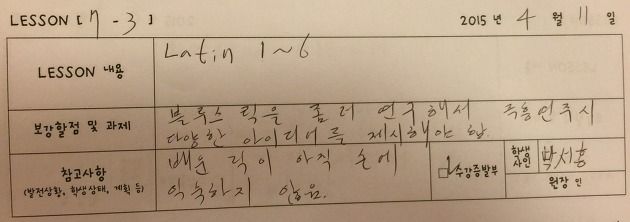 LESSON [ 7-3 ] 2015 년 4 월 11 일
LESSON 내용 Latin 1~6
보강할점 및 과제 블루스 릭을 좀더 연구해서 즉흥연주시
다양한 아이디어를 제시해야 함.
참고사항 배운 릭이 아직 손에
(발전상황, 학생상태, 계획 등) 익숙하지 않음.
수강증발부
학생
사인 박서홍
원장 인